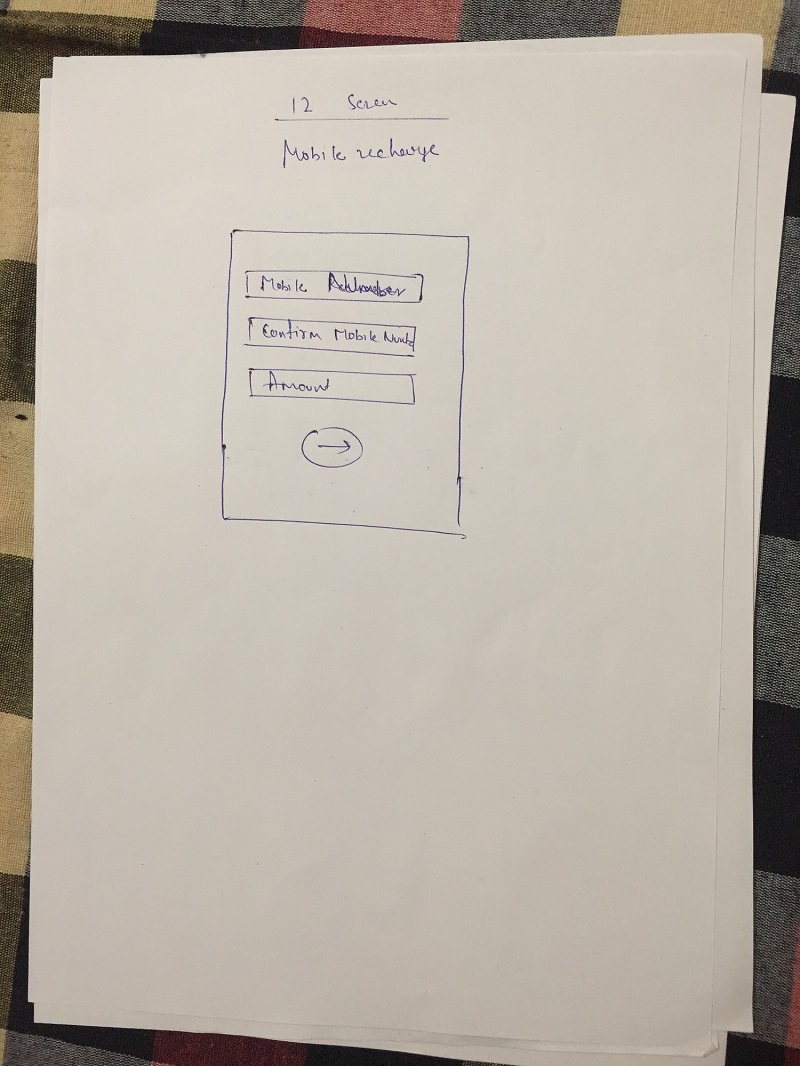 12 Screen
Mobile recharge
Mobile
Confirm Mobile Numb
Amount